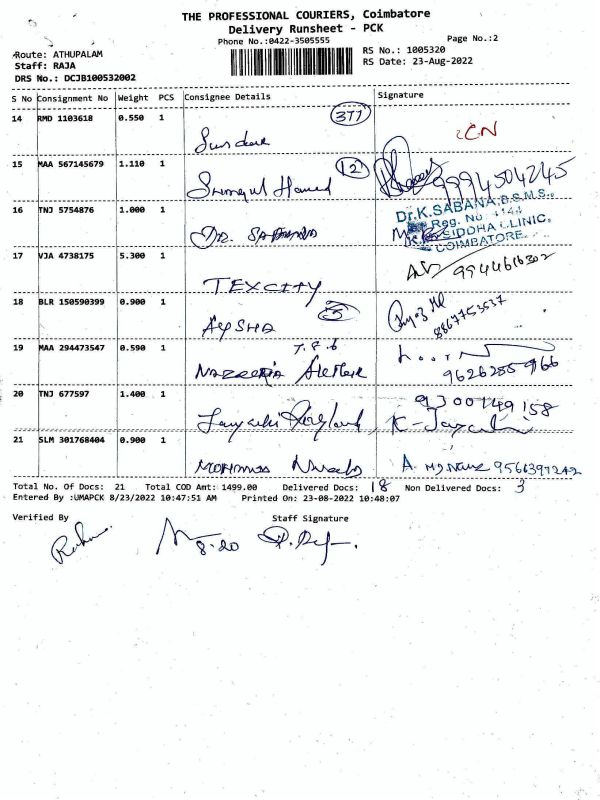 THE PROFESSIONAL COURIERS, Coimbatore
Delivery Runsheet - PCK
Phone No.:0422-3505555
Page No.:2
Route: ATHUPALAM
RS No.: 1005320
Staff: RAJA
RS Date: 23-Aug-2022
DRS No.: DCJB100532002
S No Consignment No Weight PCS Consignee Details Signature
14 RMD 1103618 0.550 1 377
CN
15 MAA 567145679 1.110 1 12
9994504245
16 TNJ 5754876 1.000 1
DR. SABANA
Dr.K.SABANA,B.S.M.S.,
Reg. No
SIDDHA CLINIC,
COIMBATORE.
17 VJA 4738175 5.300 1
TEXCITY
9944616302
18 BLR 150590399 0.900 1
AYSHA
8867753537
19 MAA 294473547 0.590 1
NAZEERIA
9626285966
20 TNJ 677597 1.400 1
9300149158
21 SLM 301768404 0.900 1
9566397242
Total No. Of Docs: 21 Total COD Amt: 1499.00 Delivered Docs: 18 Non Delivered Docs: 3
Entered By :UMAPCK 8/23/2022 10:47:51 AM Printed On: 23-08-2022 10:48:07
Verified By Staff Signature
8-20